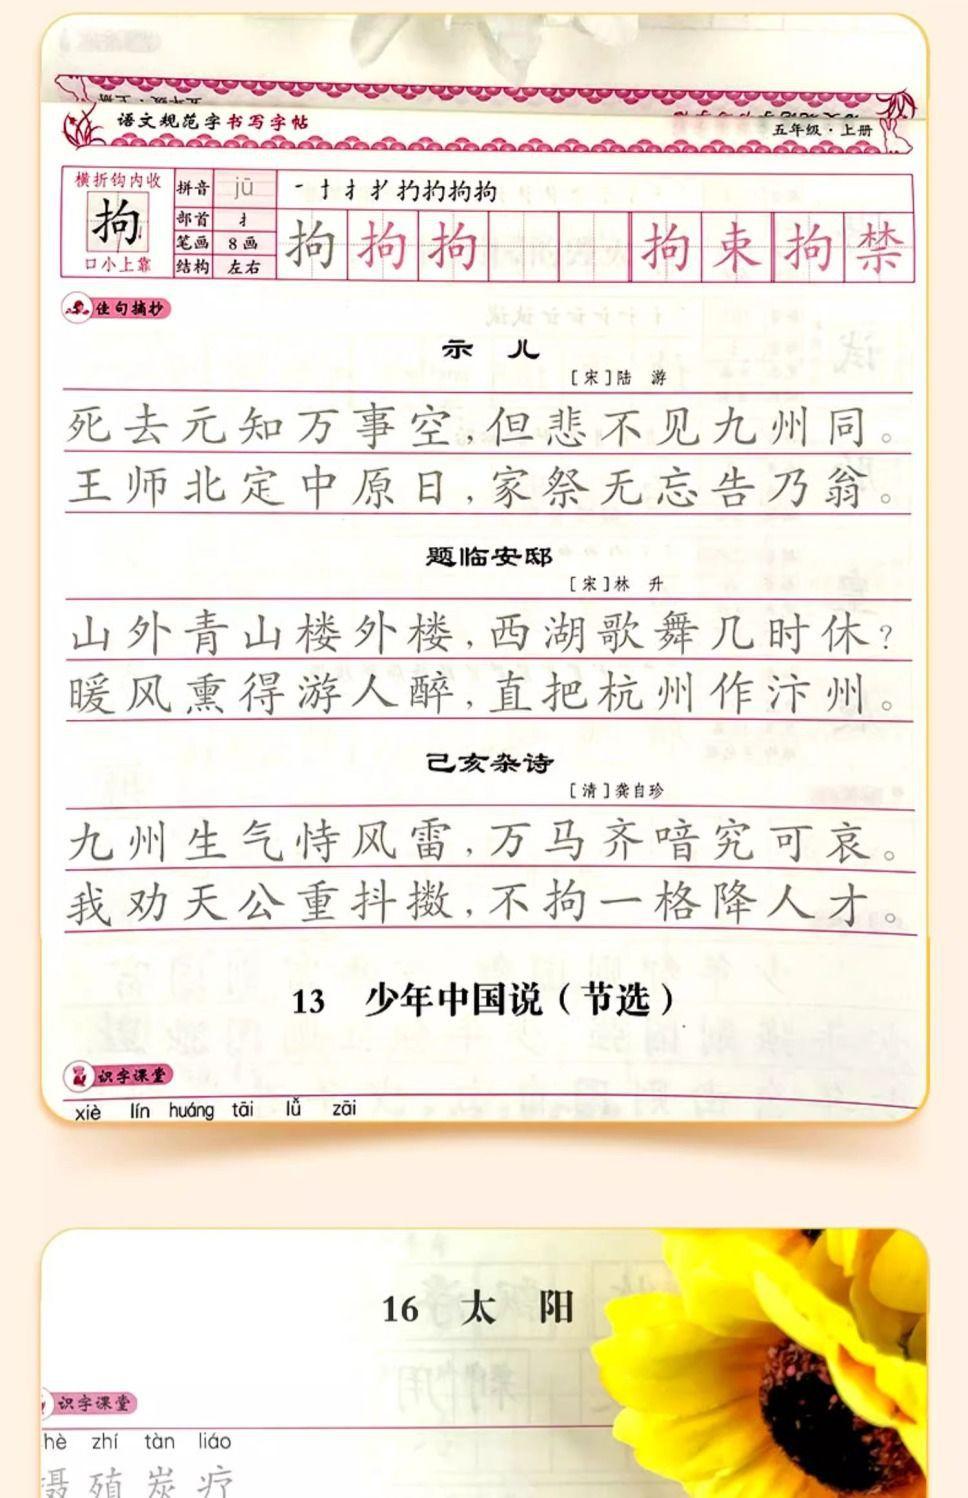 语文规范字书写字帖
五年级·上册
横折钩内收
拘
口小上靠
拼音 jū
部首 扌
笔画 8画
结构 左右
拘 拘 拘 拘 束 拘 禁
佳句摘抄
示 儿
[宋]陆 游
死去元知万事空,但悲不见九州同。
王师北定中原日,家祭无忘告乃翁。
题临安邸
[宋]林 升
山外青山楼外楼,西湖歌舞几时休?
暖风熏得游人醉,直把杭州作汴州。
己亥杂诗
[清]龚自珍
九州生气恃风雷,万马齐喑究可哀。
我劝天公重抖擞,不拘一格降人才。
13 少年中国说(节选)
识字课堂
xiè lín huáng tāi lǚ zāi
16 太 阳
识字课堂
hè zhí tàn liáo
殖 炭 疗